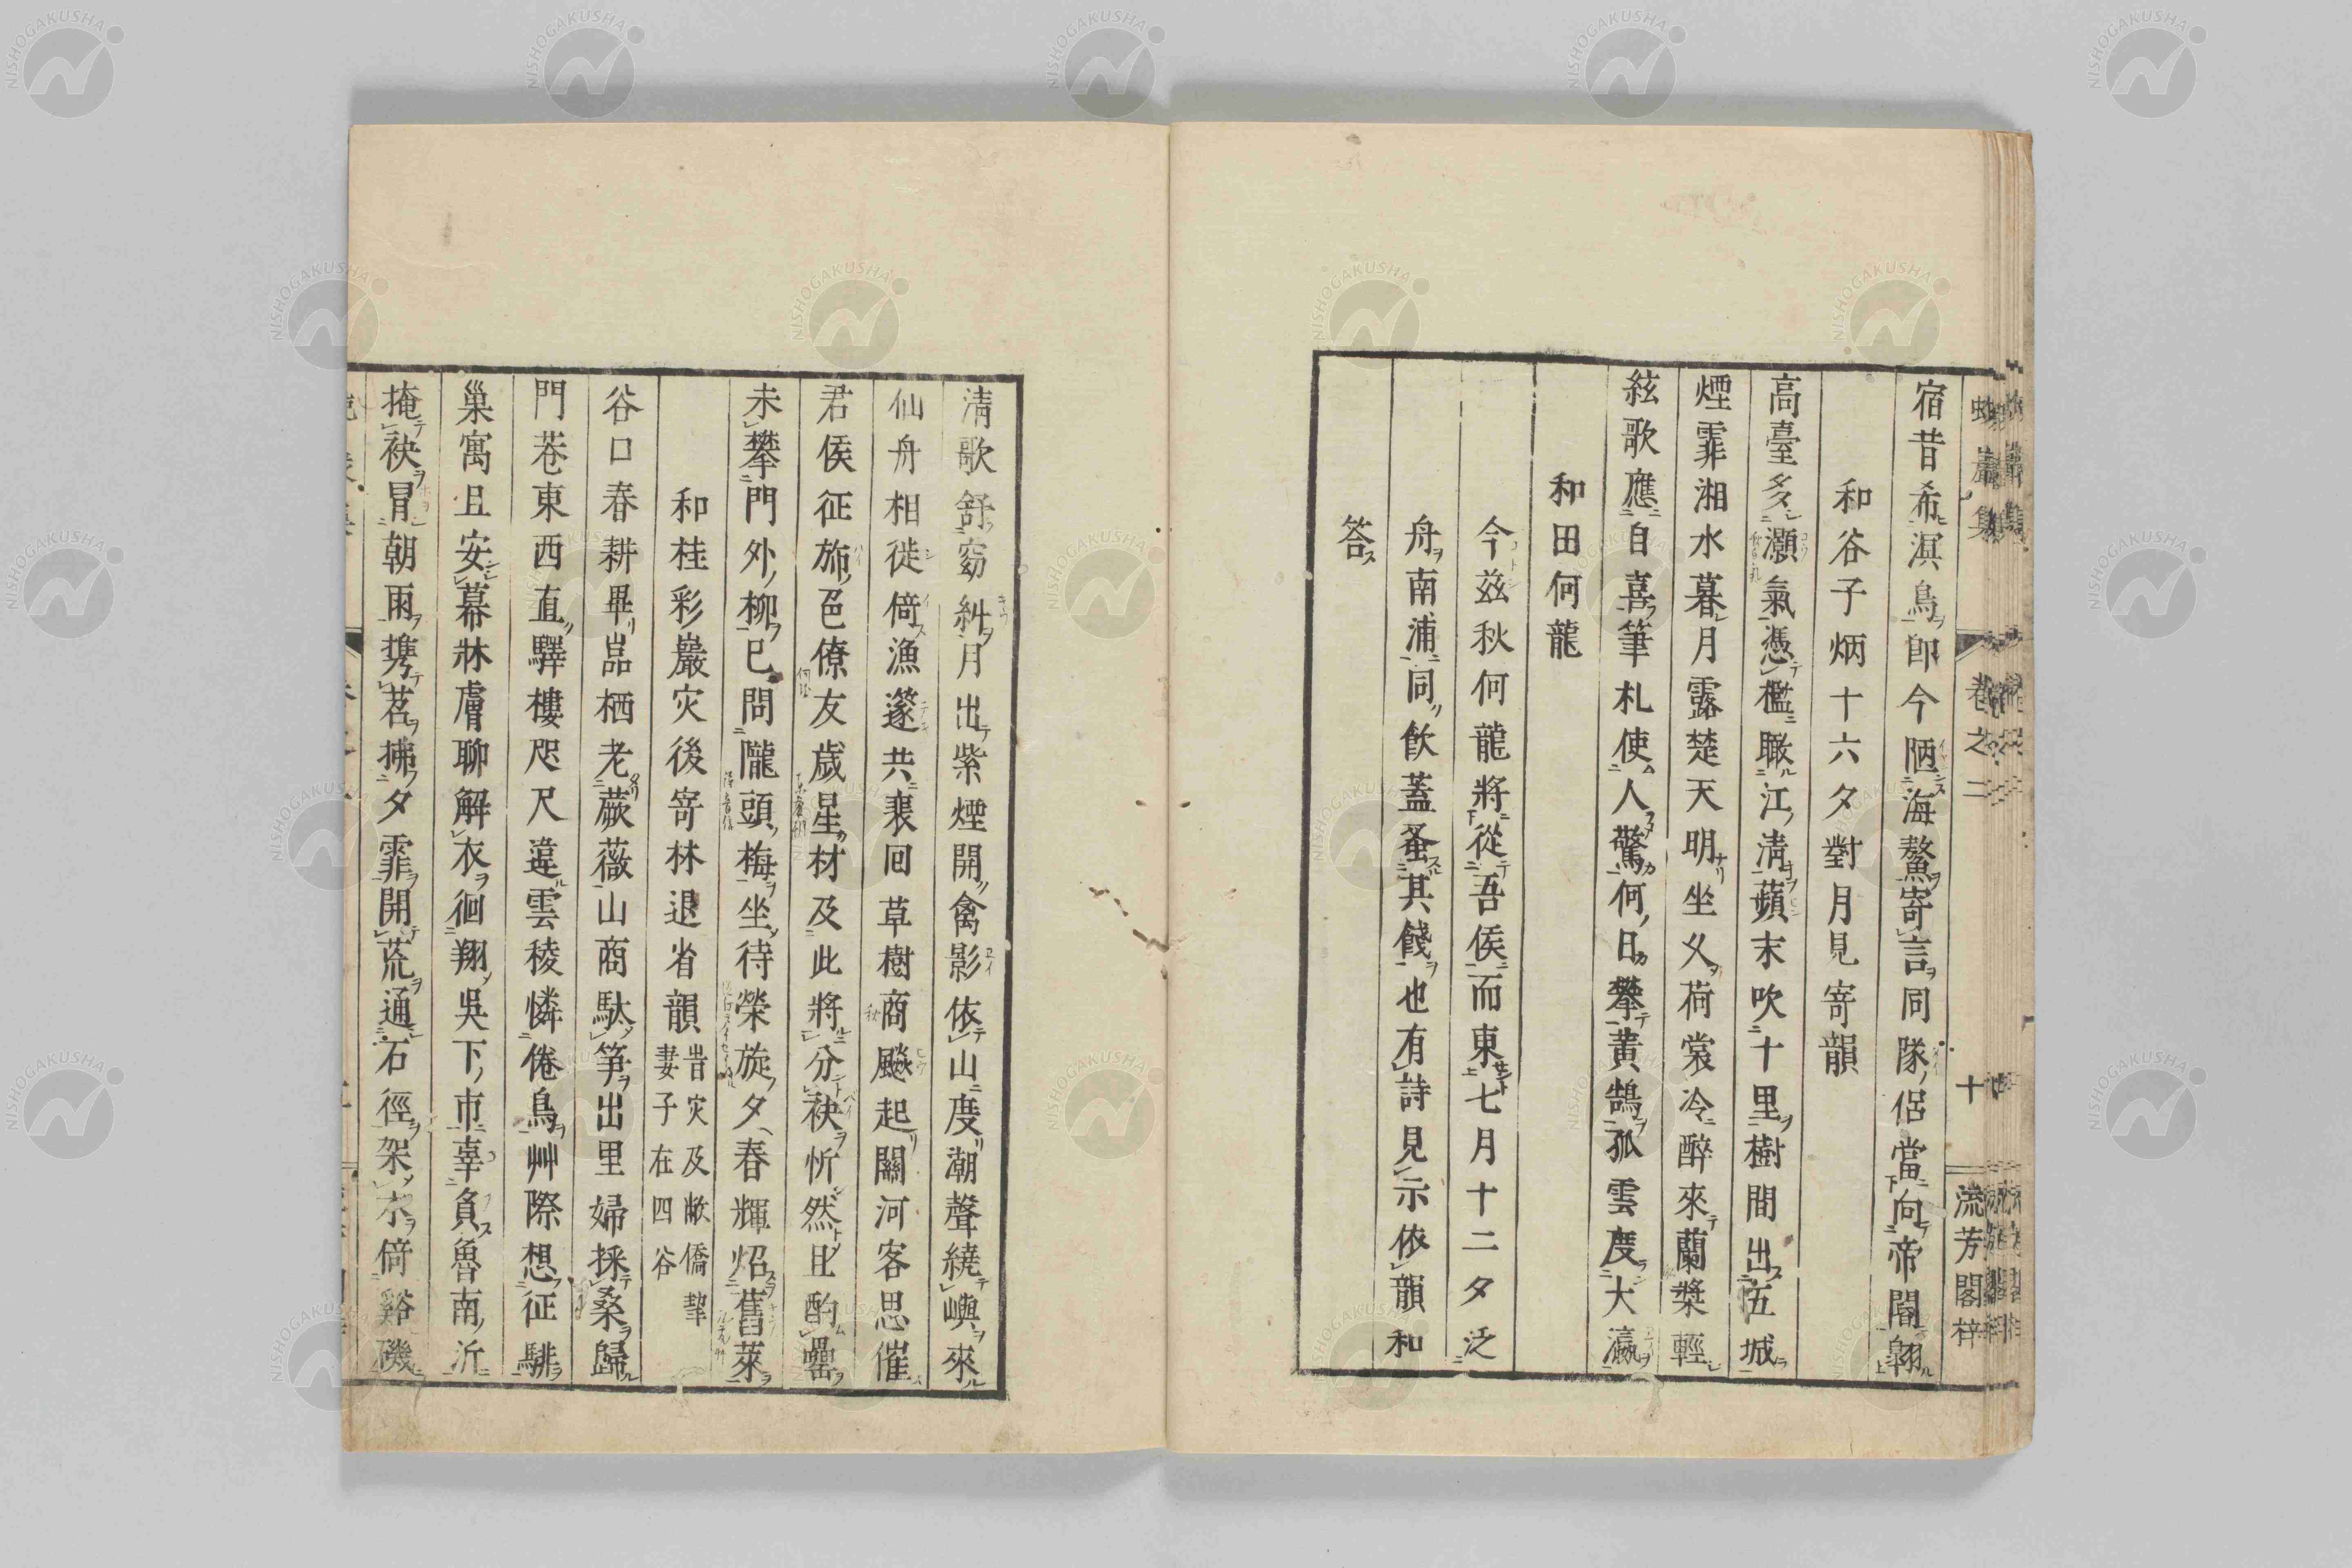 宿昔希溟鳥卽今陋海鰲寄言同隊侶當向帝閽翺
和谷子炳十六夕對月見寄韻
高臺多灝氣憑檻瞰江淸蘋末吹十里樹間出五城
煙霏湘水暮月露楚天明坐久荷裳冷醉來蘭槳輕
絃歌應自喜筆札使人驚何日攀黃鵠孤雲度大瀛
和田何龍
今茲秋何龍將從吾侯而東七月十二夕泛
舟南浦同飮蓋蚤其餞也有詩見示依韻和
答
卷之二
十
流芳閣梓
淸歌舒窈糾月出紫煙開禽影依山度潮聲繞嶼來
仙舟相徙倚漁邃共裴囘草樹商飈起關河客思催
君侯征旆邑僚友歲星材及此將分袂忻然且酌罍
未攀門外柳已問隴頭梅坐待榮旋夕春輝炤舊萊
和桂彩巖灾後寄林退省韻
旹灾及敝僑挈
妻子在四谷
谷口春耕畢嵓栖老蕨薇山商馱笋出里婦採桑歸
門巷東西直驛樓咫尺違雲稜憐倦鳥艸際想征騑
巢寓且安幕牀膚聊解衣徊翔吳下市辜負魯南沂
掩袂冒朝雨携茗拂夕霏開荒通石徑架木倚谿磯
NISHOGAKUSHA